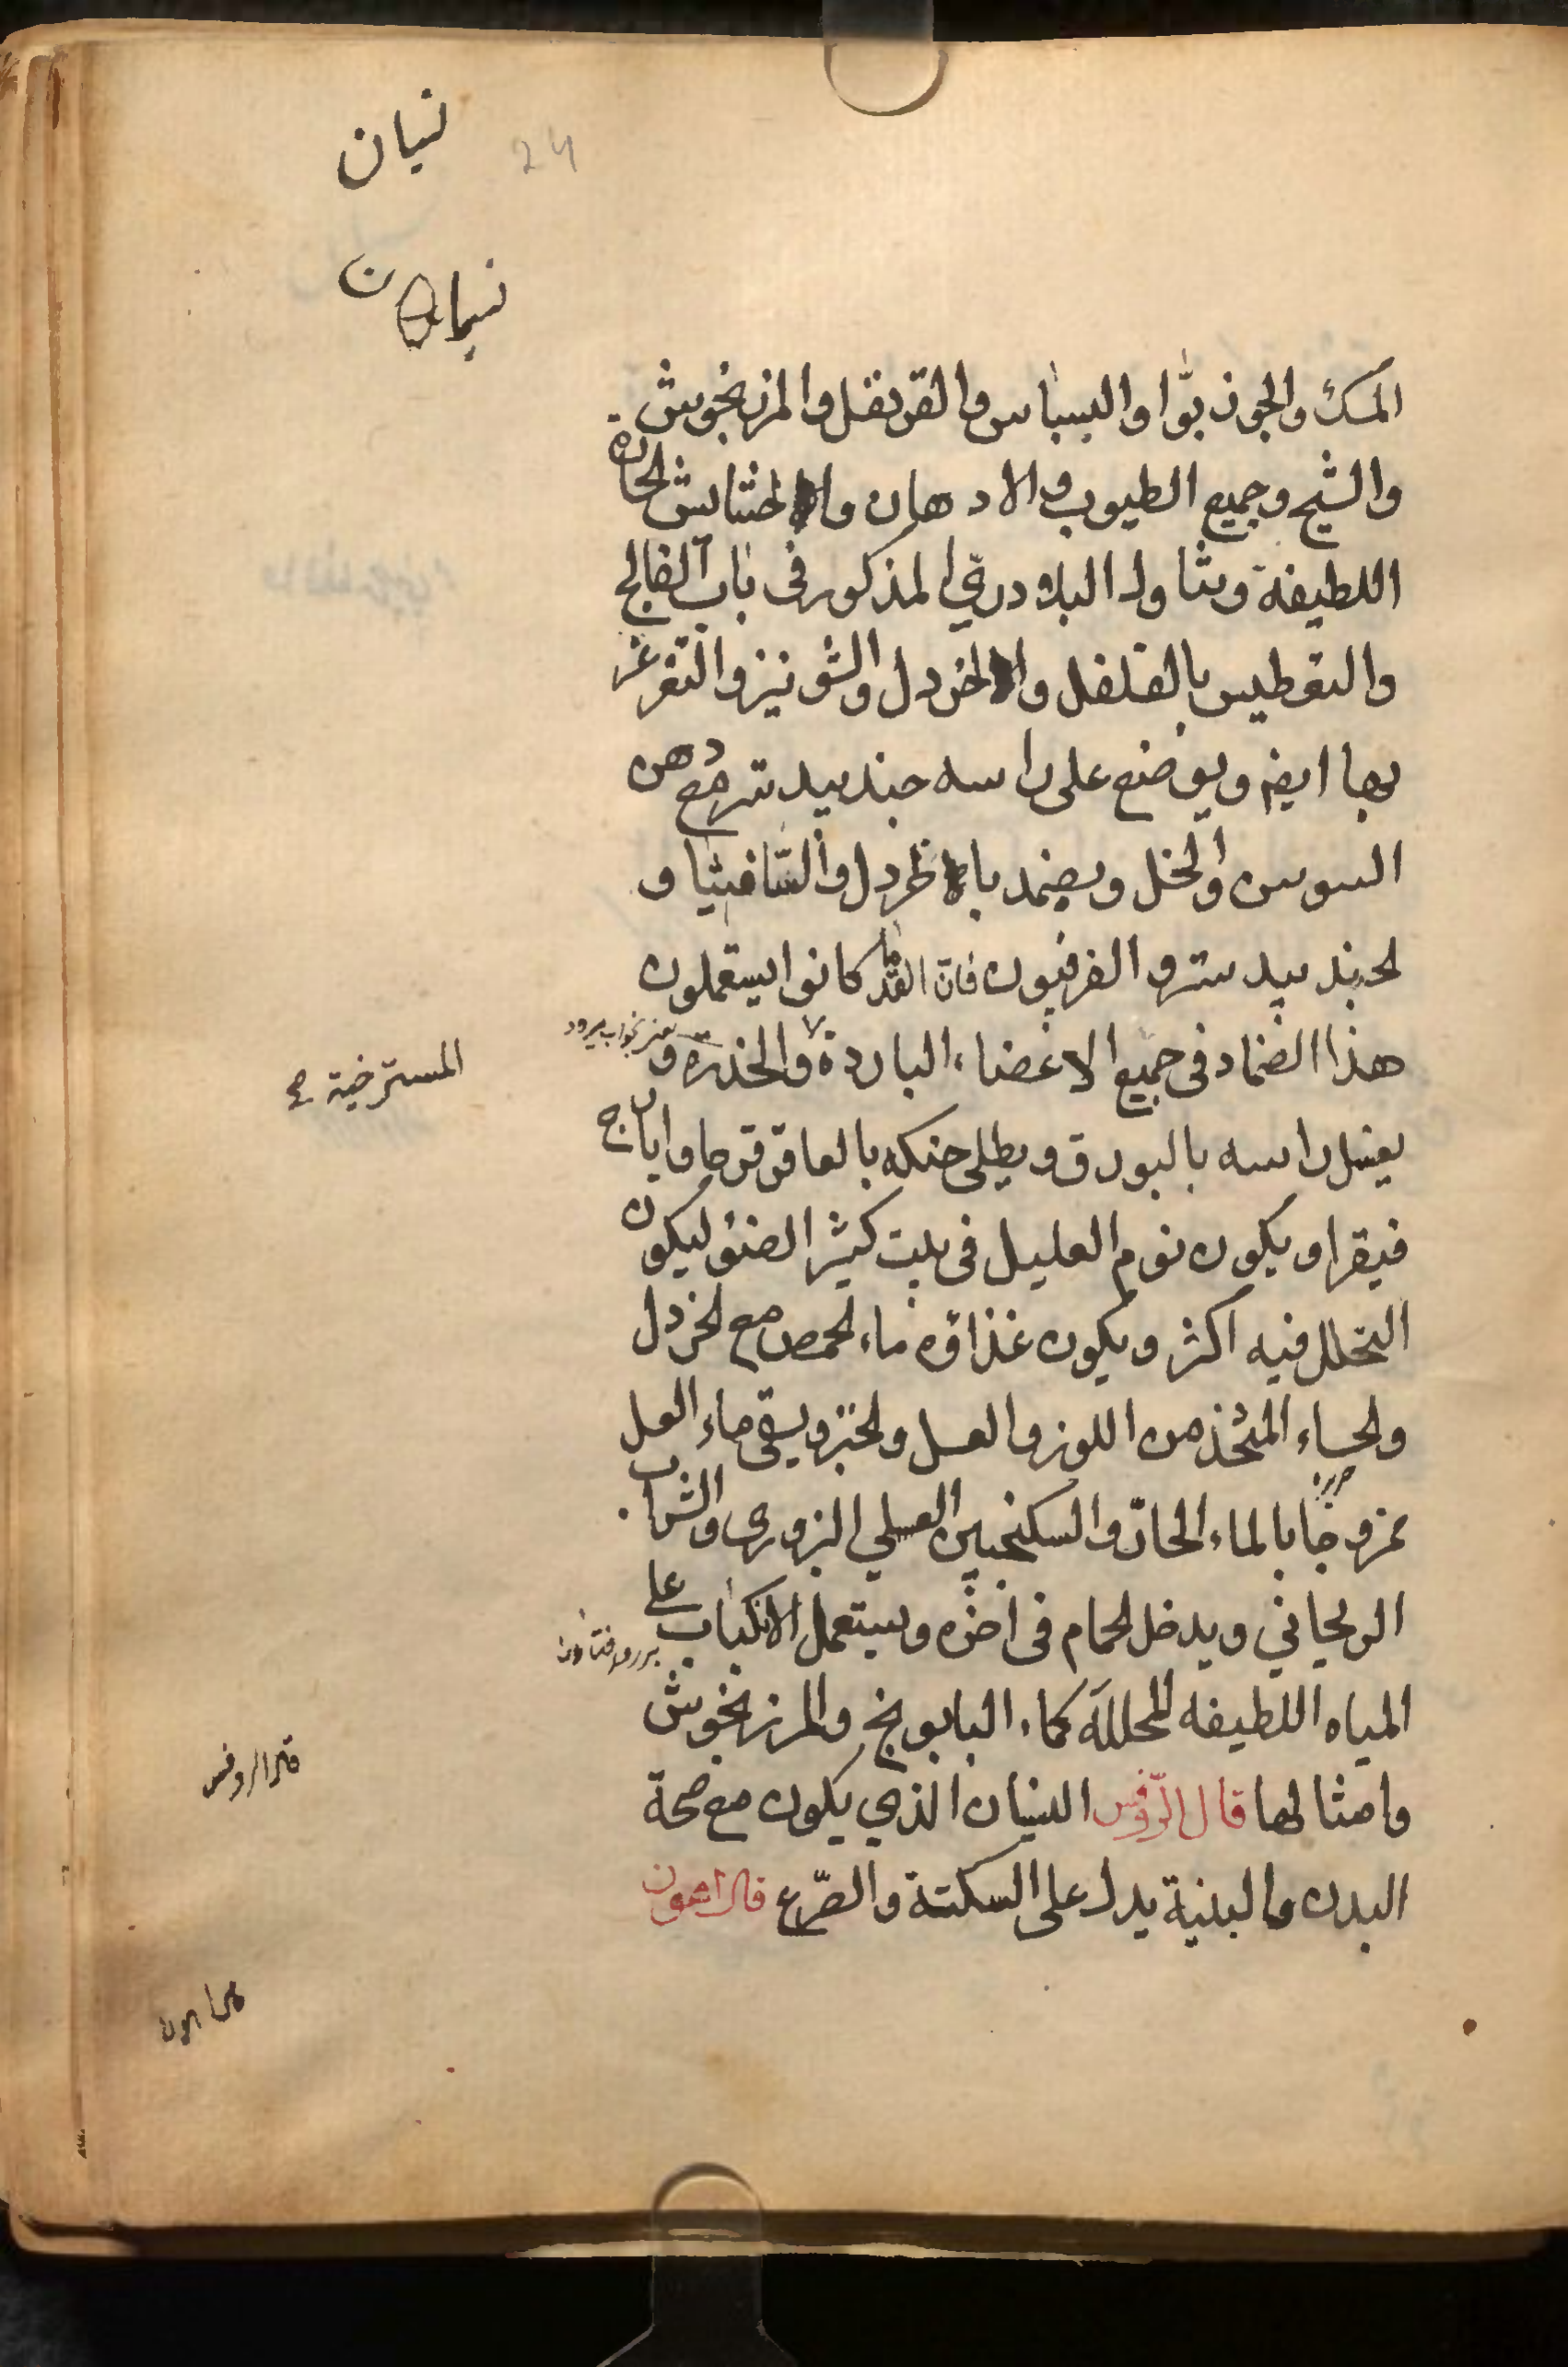 نسيان
24
نسيان
المسك والجوز بوّا والبسباس والقرنفل والمرزنجوش
والشيح وجميع الطيوب والادهان والحشائش الحارة
اللطيفة وتناول البلادرى المذكور فى باب الفالج
والتعطيس بالفلفل والخردل والشونيز والتغرغر
بها ايضا ويوضع على راسه جندبيدستر مع دهن
السوسن والخل ويضمد بالخردل والثافيثيا و
لجندبيدستر والفرفيون فان القدما كانوا يستعملون
هذا الضماد فى جميع الاعضاء الباردة والخدرة و
المسترخية صح
يغسل راسه بالبورق ويطلى حنكه بالعاقرقرحا وايارج
فيقرا ويكون نوم العليل فى بيت كثير الضؤ ليكون
التحلل فيه اكثر ويكون غذاؤه ماء لحمص مع لخردل
ولحساء المتخذ من اللوز والعسل ولخبز ويسقى ماء العسل
ممزوجا بالماء الحار والسكنجبين العسلي البزورى والشراب
الريحاني ويدخل لحمام فى اخره ويستعمل الانكباب على
المياه اللطيفه المحلله كماء البابونج والمرزنجوش
وامثالها قال الروفس النسيان الذي يكون مع صحة
قال الروفس
البدن والبنية يدل على السكتة والصّرع قال اهرون
قال اهرون